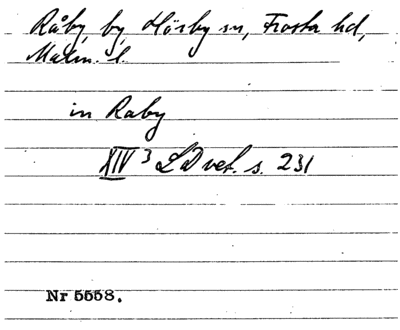 Råby, by, Hörby sn, Frosta hd,
Malm. l.
in Raby
XIV 3 LD vet. s. 231
Nr 5558.